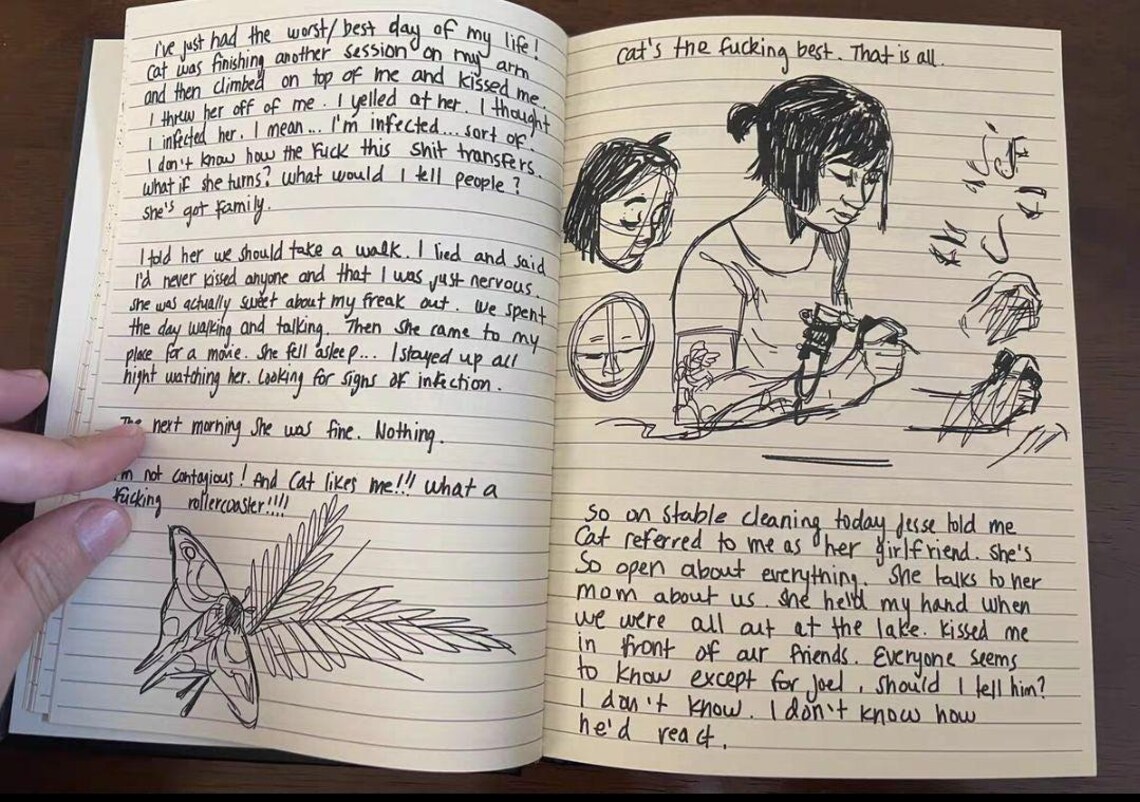 I've just had the worst/best day of my life!
Cat was finishing another session on my arm
and then climbed on top of me and kissed me.
I threw her off of me. I yelled at her. I thought
I infected her. I mean... I'm infected... sort of.
I don't know how the fuck this shit transfers.
What if she turns? What would I tell people?
She's got family.
I told her we should take a walk. I lied and said
I'd never kissed anyone and that I was just nervous.
She was actually sweet about my freak out. We spent
the day walking and talking. Then she came to my
place for a movie. She fell asleep... I stayed up all
night watching her. Looking for signs of infection.
The next morning she was fine. Nothing.
I'm not contagious! And Cat likes me!!! What a
fucking rollercoaster!!!!
Cat's the fucking best. That is all.
So on stable cleaning today Jesse told me
Cat referred to me as her girlfriend. She's
so open about everything. She talks to her
mom about us. She held my hand when
we were all out at the lake. Kissed me
in front of our friends. Everyone seems
to know except for Joel. Should I tell him?
I don't know. I don't know how
he'd react.